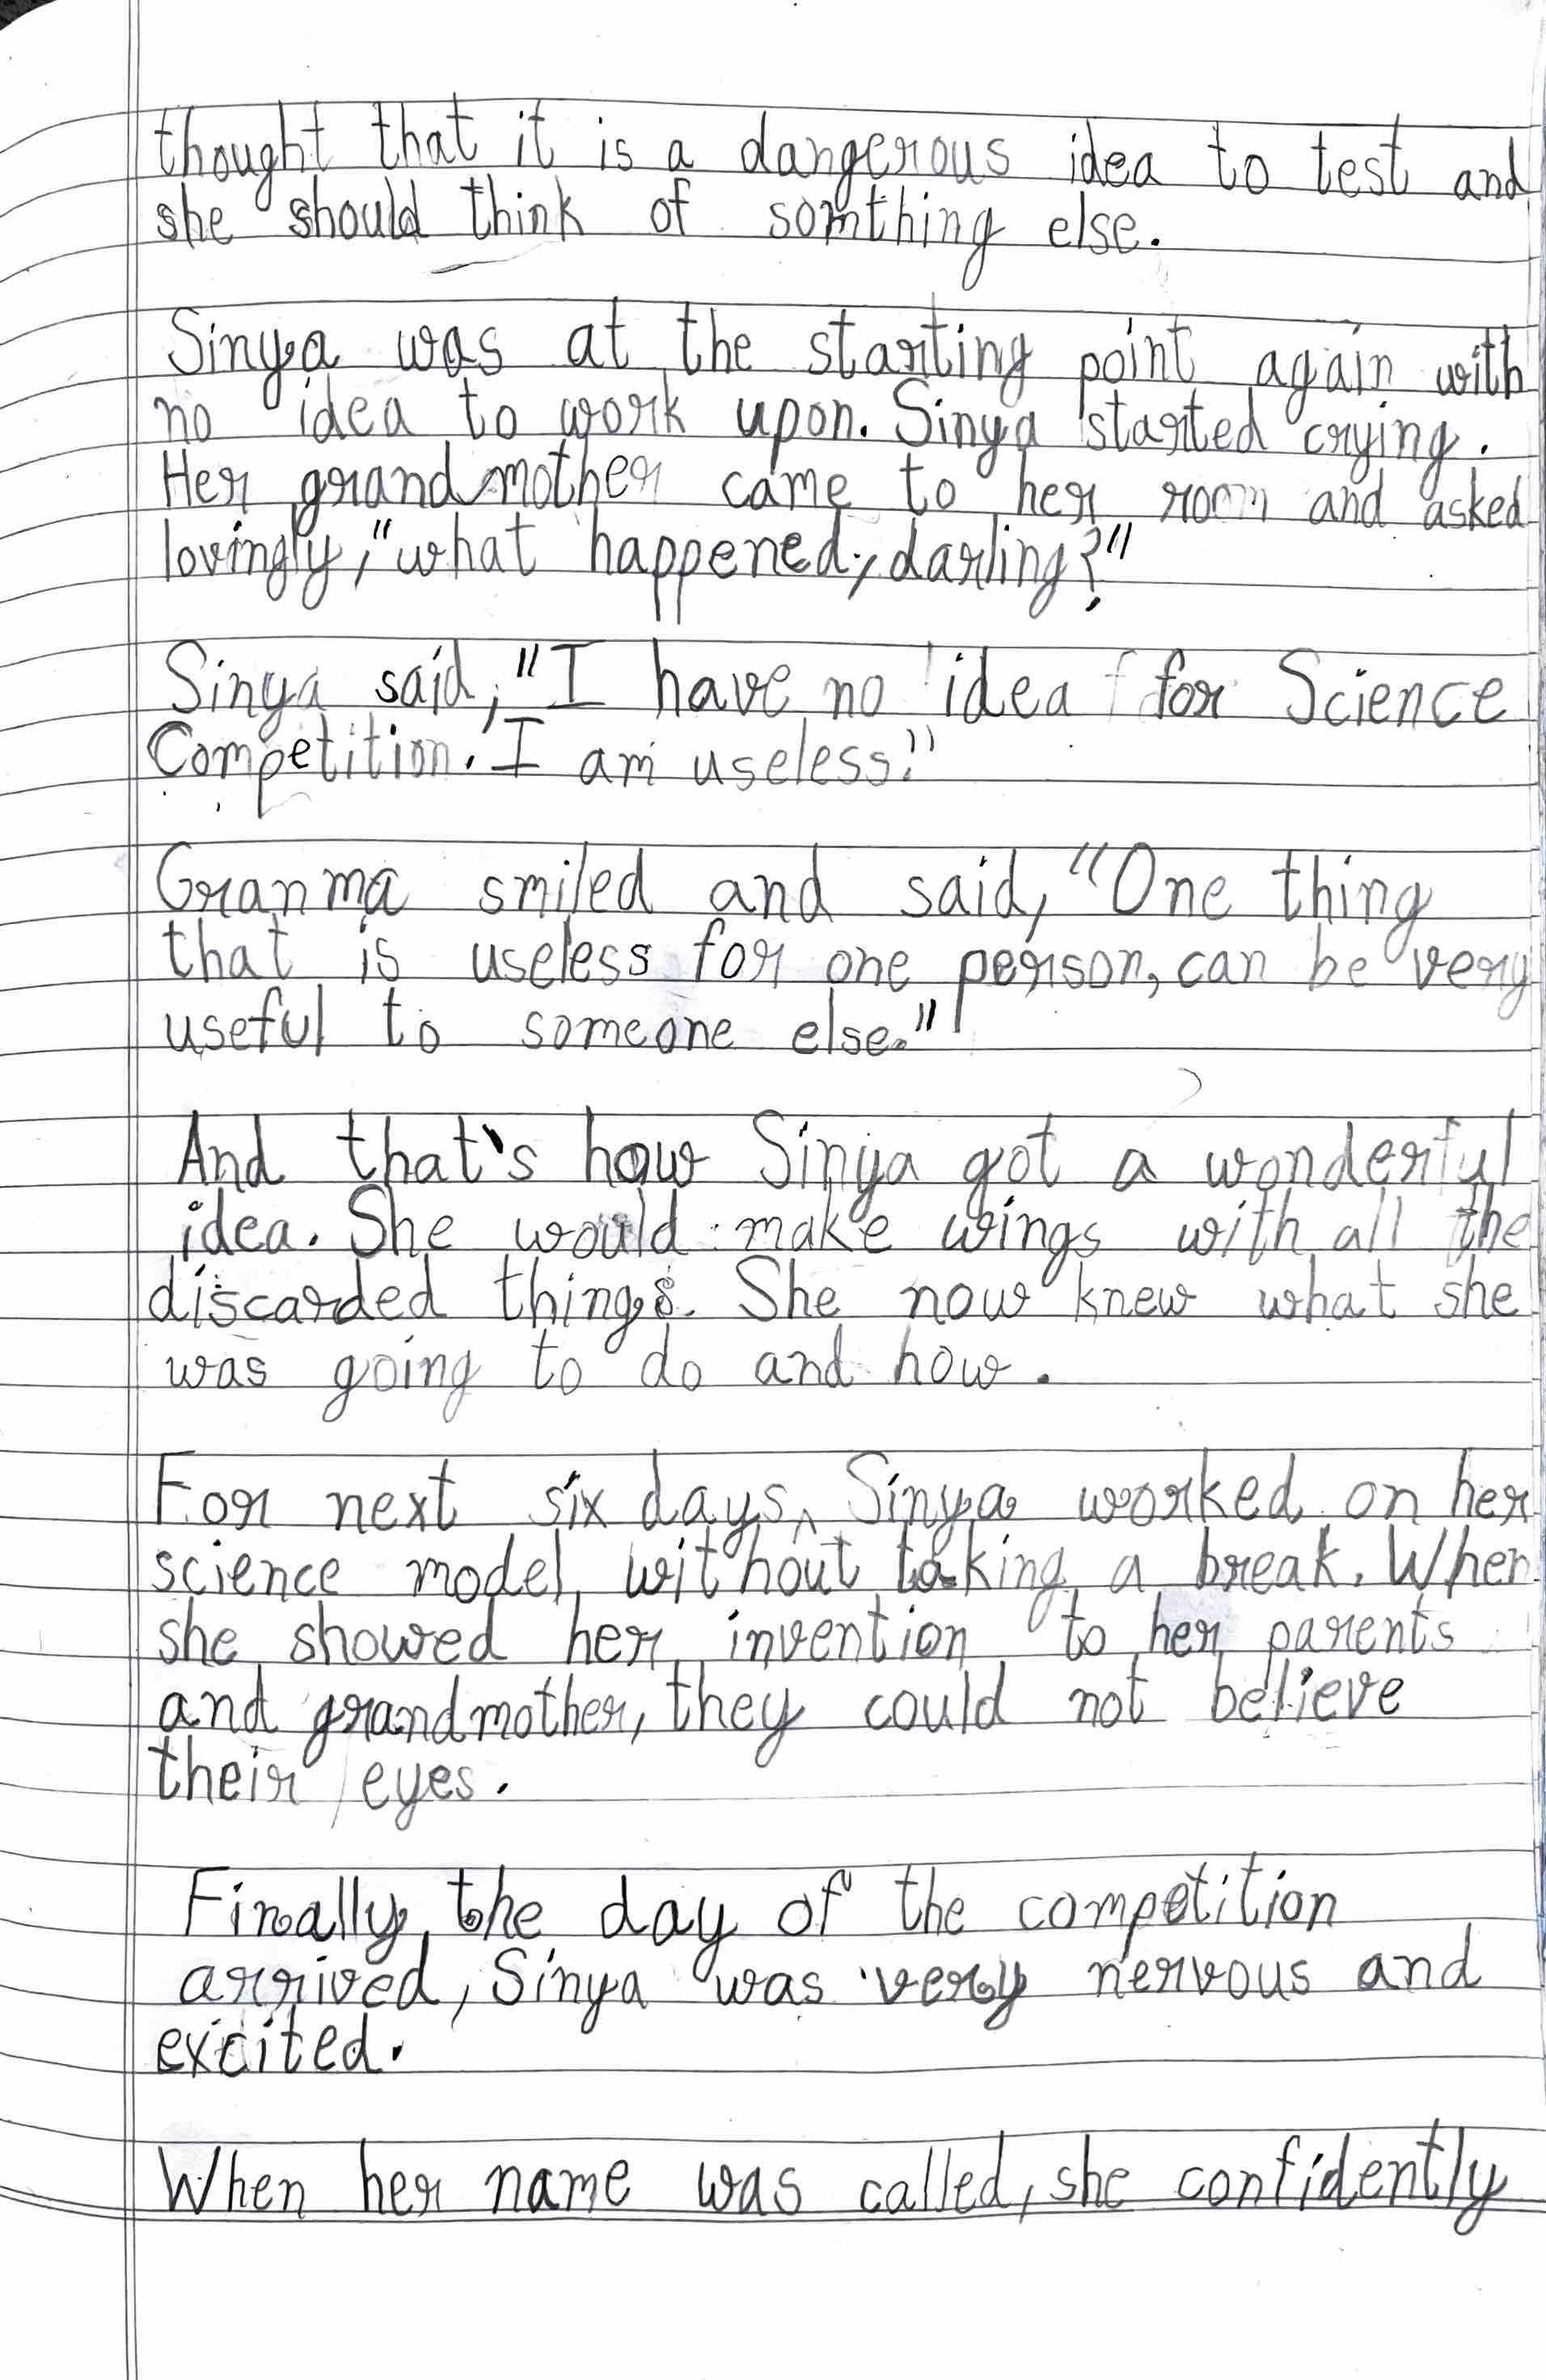 thought that it is a dangerous idea to test and
she should think of somthing else.
Sinya was at the starting point again with
no idea to work upon. Sinya started crying.
Her grandmother came to her room and asked
lovingly, "what happened, darling?"
Sinya said, "I have no idea for Science
Competition. I am useless."
Granma smiled and said, "One thing
that is useless for one person, can be very
useful to someone else."
And that's how Sinya got a wonderful
idea. She would make wings with all the
discarded things. She now knew what she
was going to do and how.
For next six days, Sinya worked on her
science model without taking a break. When
she showed her invention to her parents
and grandmother, they could not believe
their eyes.
Finally, the day of the competition
arrived, Sinya was very nervous and
excited.
When her name was called, she confidently